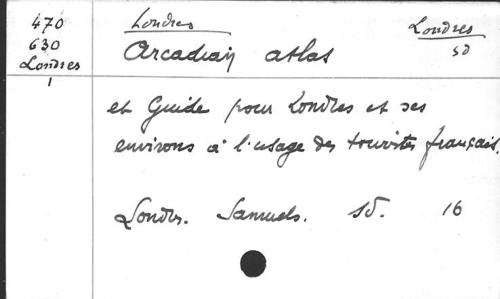 470
630
Londres
1
Londres
Londres
sd
Arcadian atlas
et Guide pour Londres et ses
environs à l'usage des touristes français.
Londres. Samuels. sd. 16